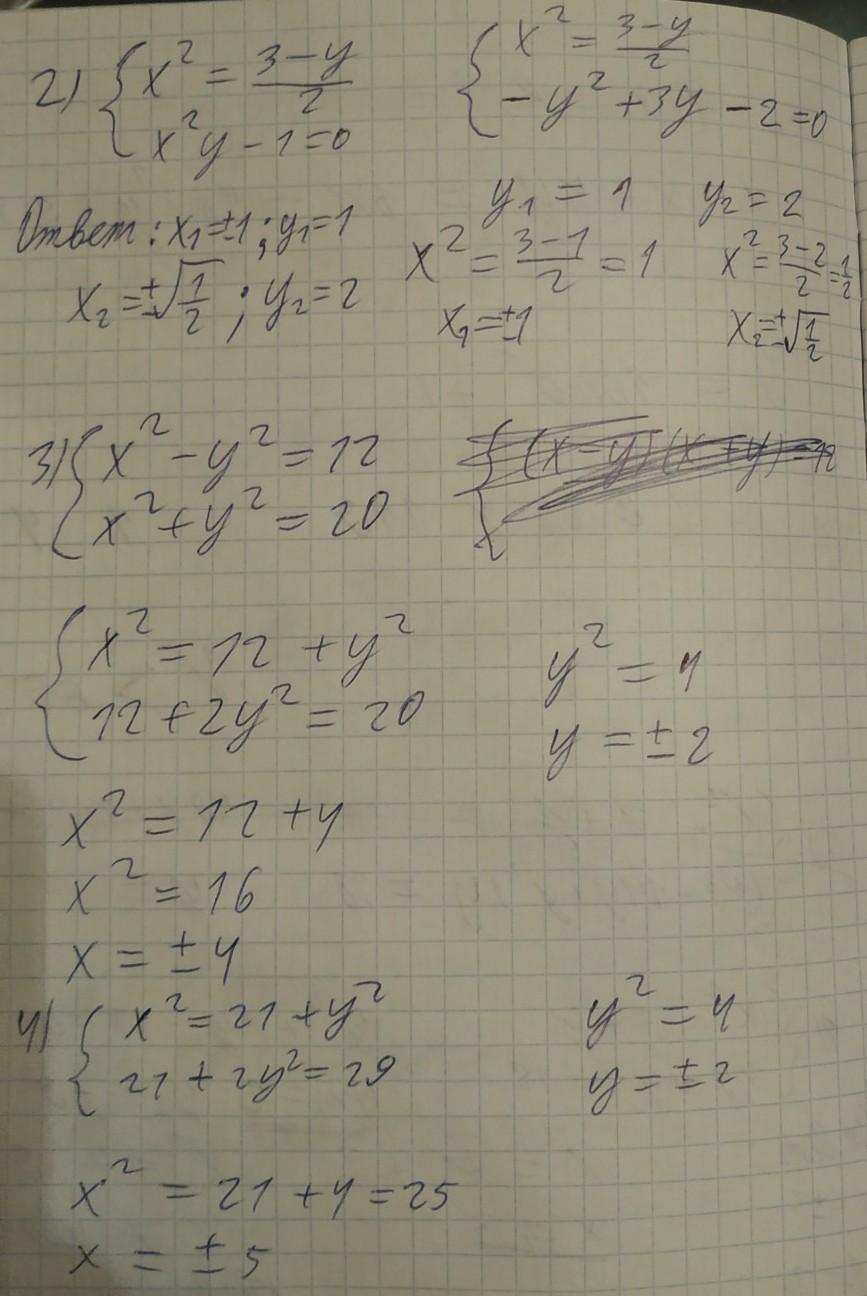 2) { x² = (3-y)/2
x²y - 1 = 0
{ x² = (3-y)/2
-y² + 3y - 2 = 0
Ответ: x₁ = ±1; y₁ = 1
x₂ = ±√(1/2); y₂ = 2
y₁ = 1   y₂ = 2
x² = (3-1)/2 = 1   x² = (3-2)/2 = 1/2
x₁ = ±1   x₂ = ±√(1/2)
3) { x² - y² = 12
x² + y² = 20
{ (x-y)(x+y) = 12
{ x² = 12 + y²
12 + 2y² = 20
y² = 4
y = ±2
x² = 12 + 4
x² = 16
x = ±4
4) { x² = 21 + y²
21 + 2y² = 29
y² = 4
y = ±2
x² = 21 + 4 = 25
x = ±5